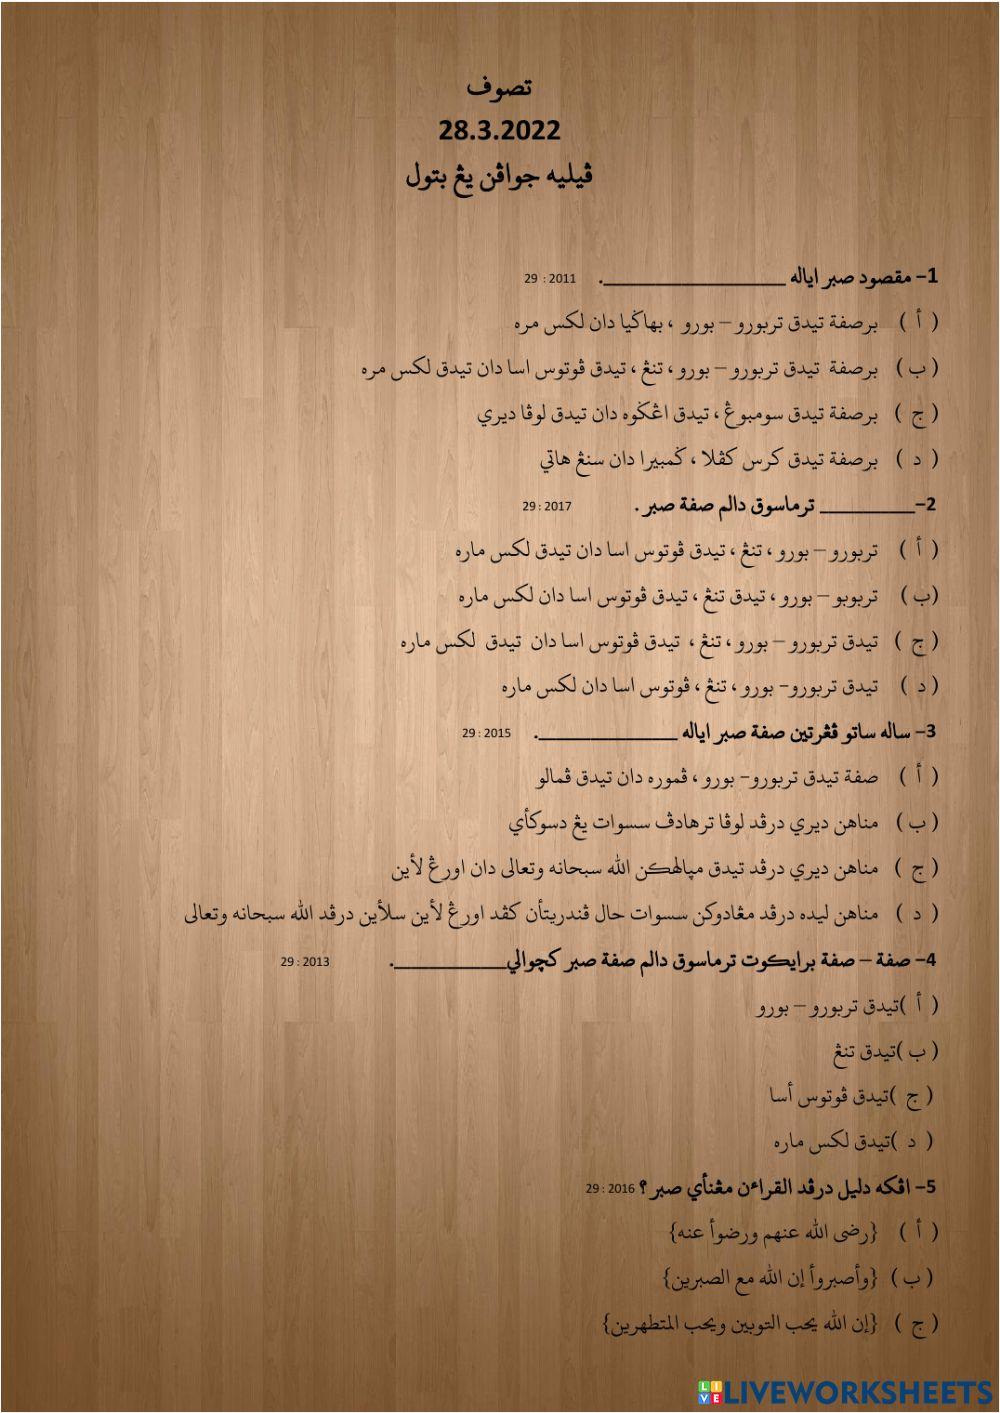 تصوف
28.3.2022
ڤيليه جواڤن يڠ بتول
1- مقصود صبر اياله ____________________. 29 : 2011
( أ ) برصفة تيدق تربورو – بورو ، بهاݢيا دان لكس مره
( ب ) برصفة تيدق تربورو – بورو ، تنڠ ، تيدق ڤوتوس اسا دان تيدق لكس مره
( ج ) برصفة تيدق سومبوڠ ، تيدق اڠکوه دان تيدق لوڤا ديري
( د ) برصفة تيدق كرس كڤلا ، ݢمبيرا دان سنڠ هاتي
2-___________ ترماسوق دالم صفة صبر . 29 : 2017
( أ ) تربورو – بورو ، تنڠ ، تيدق ڤوتوس اسا دان تيدق لكس ماره
(ب ) تربوبو – بورو ، تيدق تنڠ ، تيدق ڤوتوس اسا دان لكس ماره
( ج ) تيدق تربورو – بورو ، تنڠ ، تيدق ڤوتوس اسا دان تيدق لكس ماره
( د ) تيدق تربورو- بورو ، تنڠ ، ڤوتوس اسا دان لكس ماره
3- ساله ساتو ڤڠرتين صفة صبر اياله _______________. 29 : 2015
( أ ) صفة تيدق تربورو- بورو ، ڤموره دان تيدق ڤمالو
( ب ) مناهن ديري درڤد لوڤا ترهادڤ سسوات يڠ دسوكأي
( ج ) مناهن ديري درڤد تيدق مڽالهكن الله سبحانه وتعالى دان اورڠ لأين
( د ) مناهن ليده درڤد مڠادوكن سسوات حال ڤندريتأن كڤد اورڠ لأين سلأين درڤد الله سبحانه وتعالى
4- صفة – صفة برايكوت ترماسوق دالم صفة صبر كچوالي_____________. 29 : 2013
( أ )تيدق تربورو – بورو
( ب )تيدق تنڠ
( ج )تيدق ڤوتوس أسا
( د )تيدق لكس ماره
5- اڤكه دليل درڤد القراءن مڠنأي صبر ؟ 29 : 2016
( أ ) {رضى الله عنهم ورضوأ عنه}
( ب ) {وأصبروأ إن الله مع الصبرين}
( ج ) {إن الله يحب التوبين ويحب المتطهرين}
LIVE LIVEWORKSHEETS